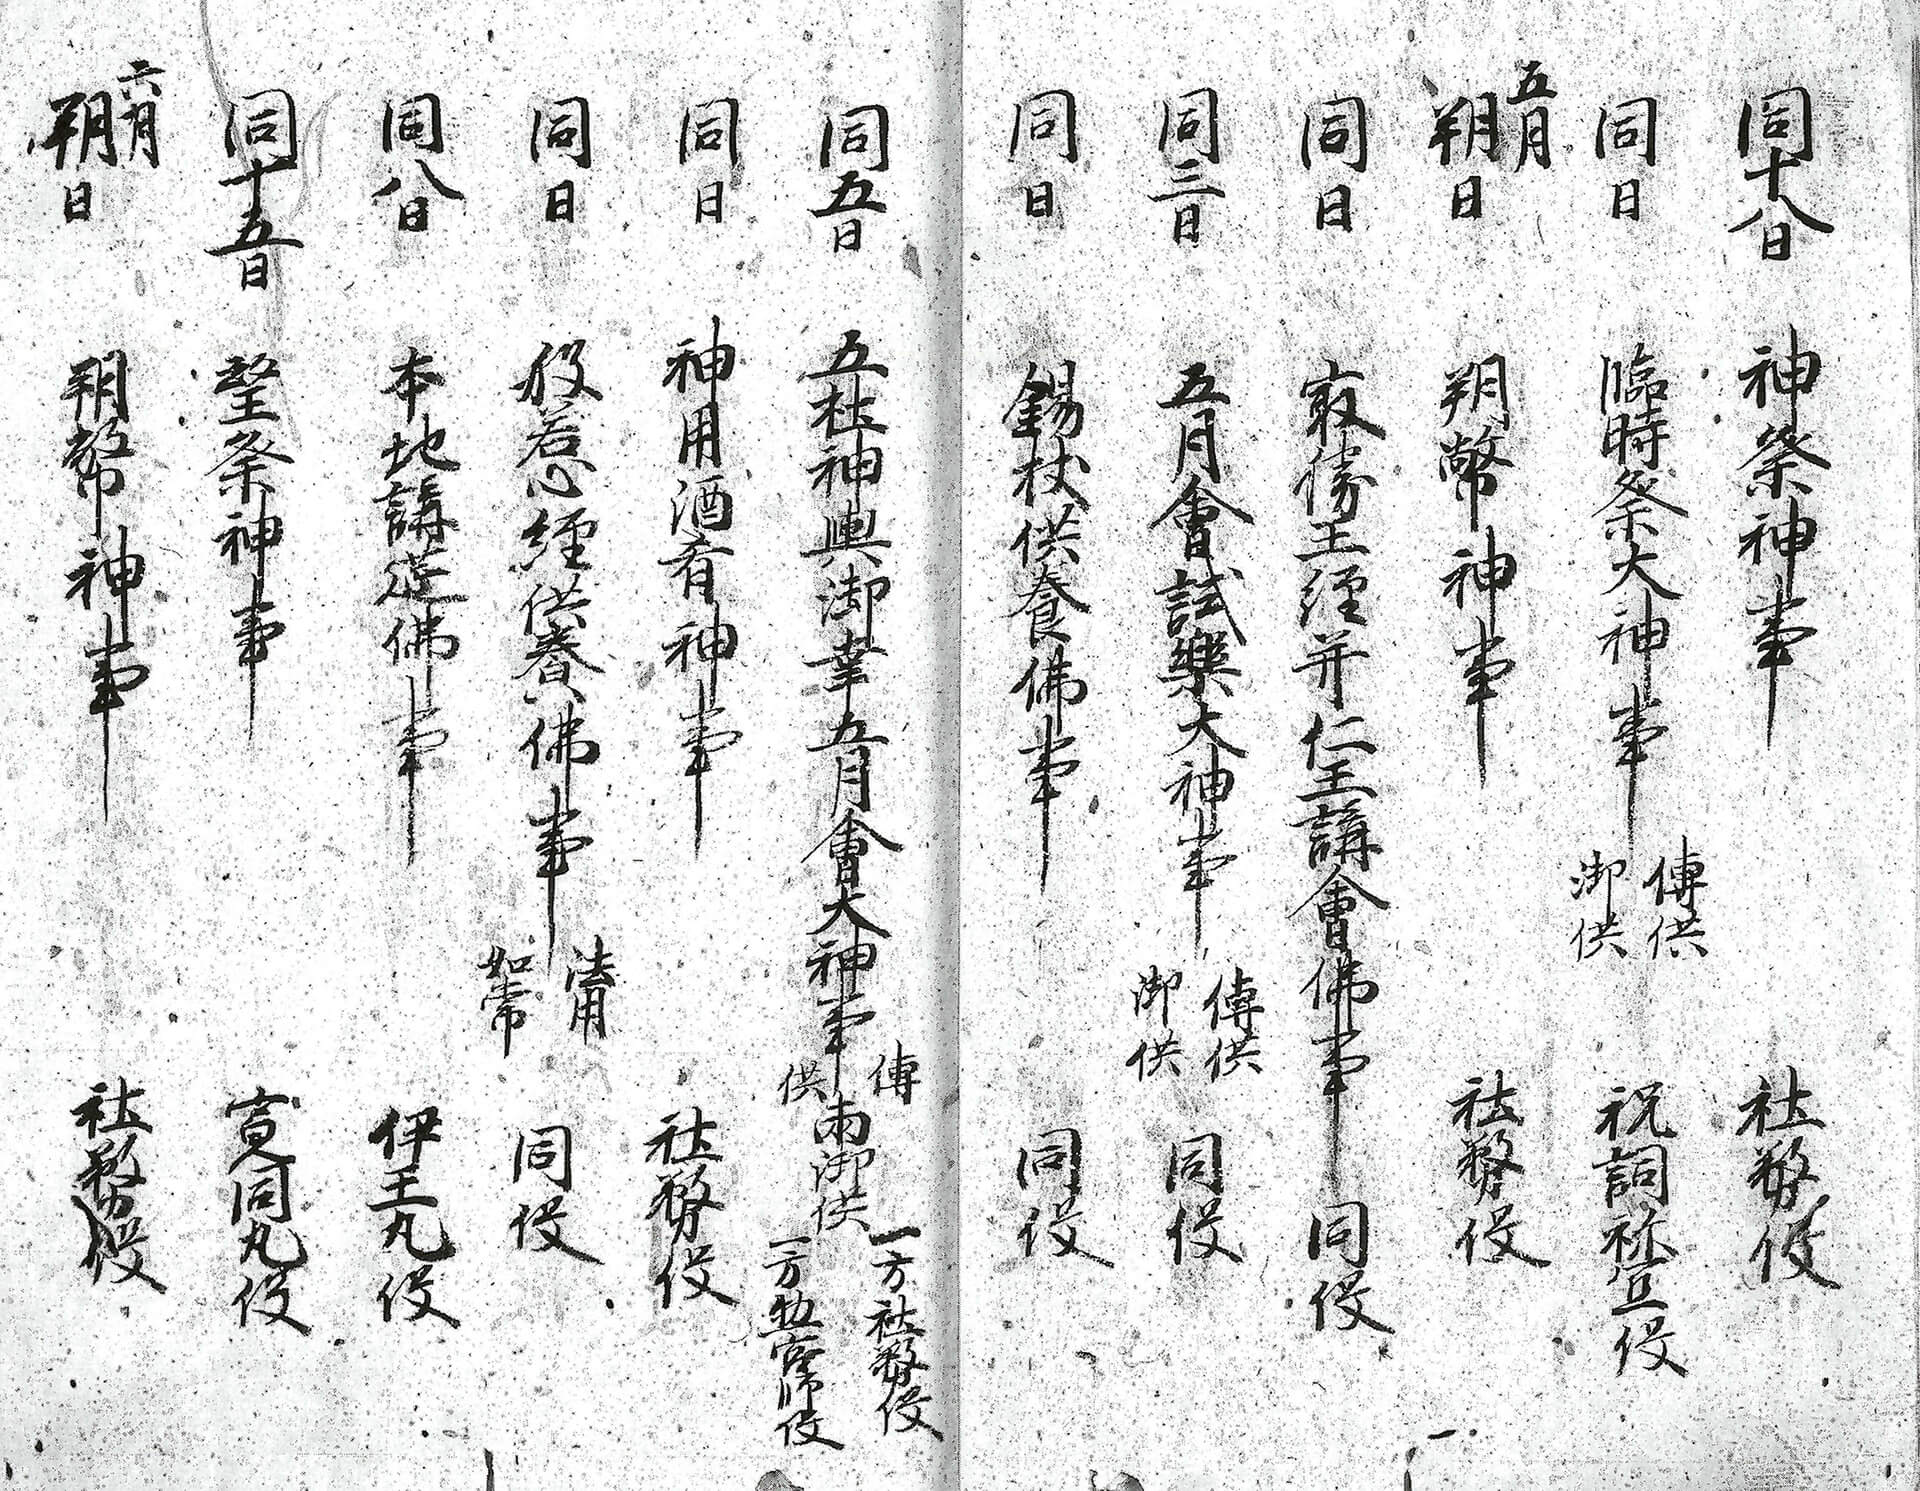 同十八日 神祭神事 社務役
同日 臨時祭大神事 傳供 御供 祝詞祢宜役
五月朔日 朔幣神事 社務役
同日 最勝王經并仁王講會佛事 同役
同三日 五月會試樂大神事 傳供 御供 同役
同日 錫杖供養佛事 同役
同五日 五社神輿御幸五月會大神事 傳供 南御供 一方社務役 一方惣官師役
同日 神用酒肴神事 社務役
同日 般若心經供養佛事 法用如常 同役
同八日 本地講莚佛事 伊王丸役
同十五日 望祭神事 同丸役
六月朔日 朔幣神事 社務役